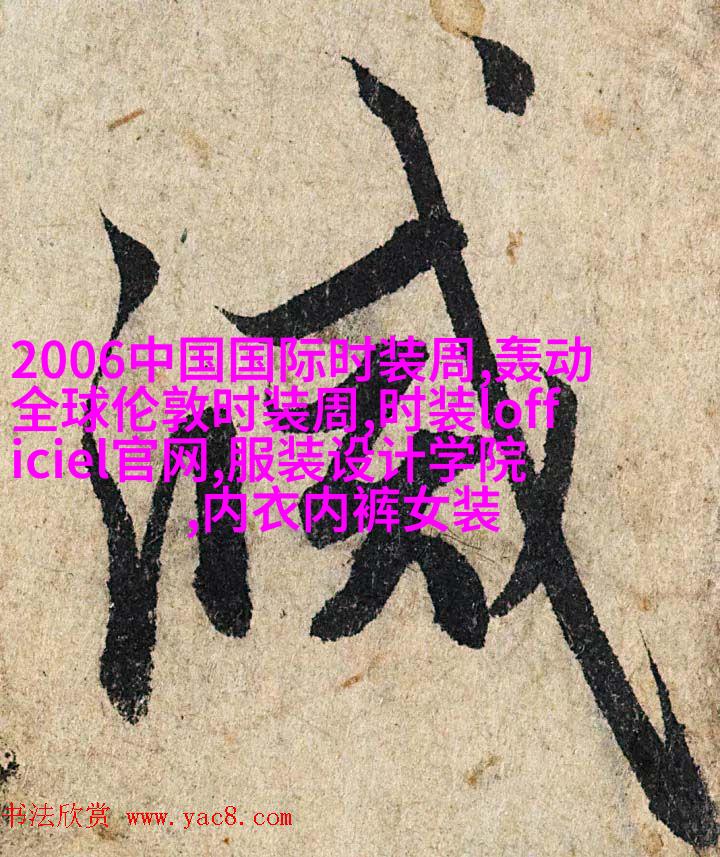 2006中国国际时装周,轰动
全球伦敦时装周,时装loff
iciel官网,服装设计学院
,内衣内裤女装
书法欣赏 www.yac8.com